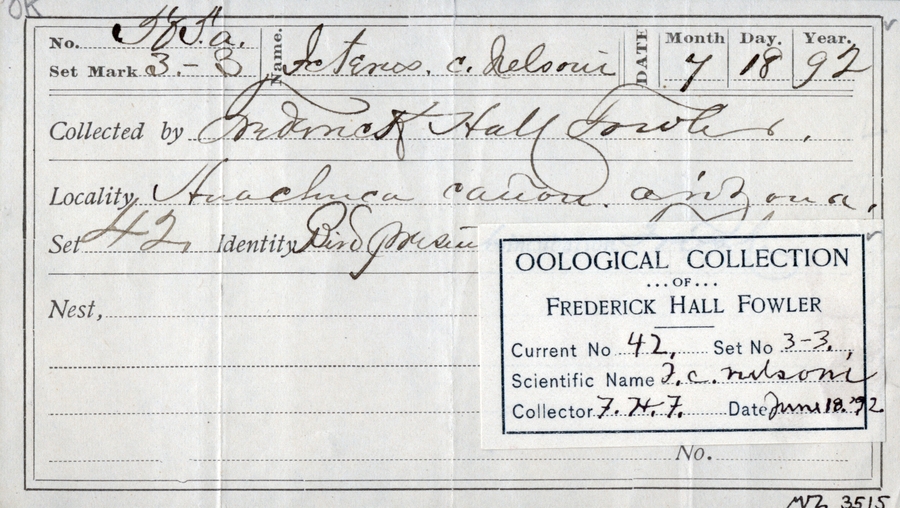 OK
No. 505.a. Name. Icterus. c. Nelsoni DATE Month Day. Year.
Set Mark 3.-3 7 18 92
Collected by Frederick Hall Fowler.
Locality Huachuca cañon. arizona.
Set 42 Identity Bird presen
Nest,
No.
OOLOGICAL COLLECTION
...OF...
FREDERICK HALL FOWLER
Current No 42. Set No 3-3.,
Scientific Name I. c. nelsoni
Collector F. H. F. Date June 18. '92.
MVZ 3515